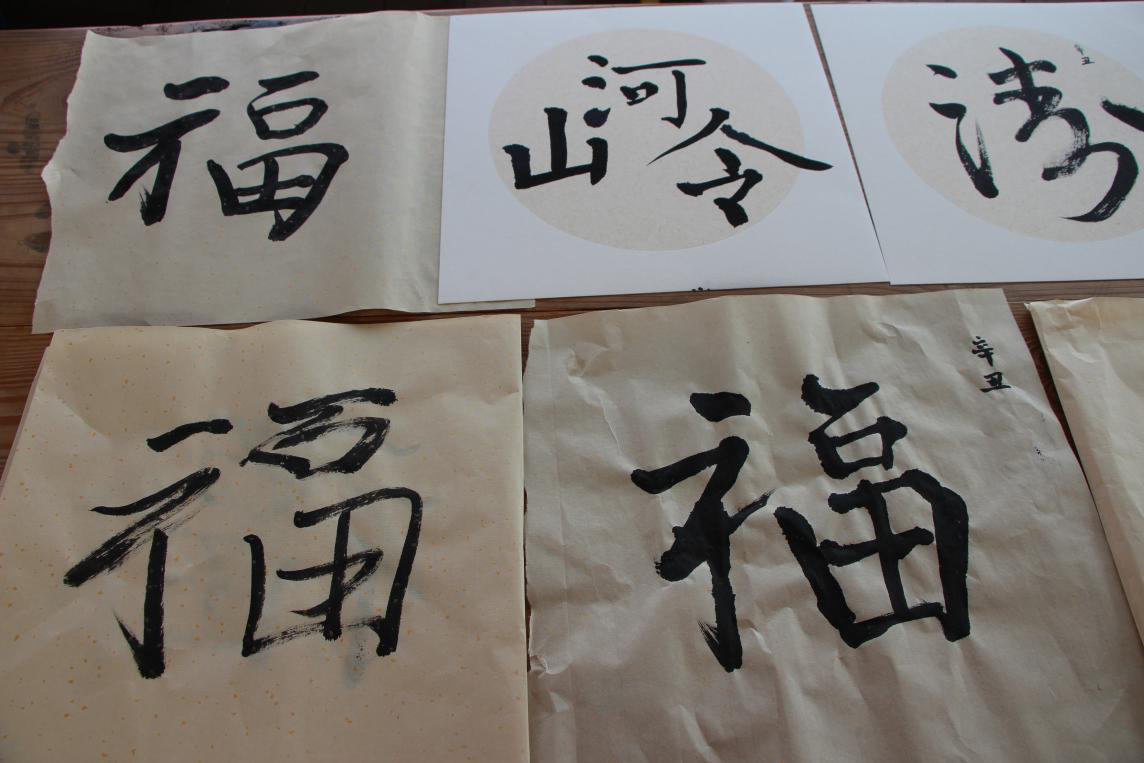 福
山河令
辛丑
福
福
辛丑